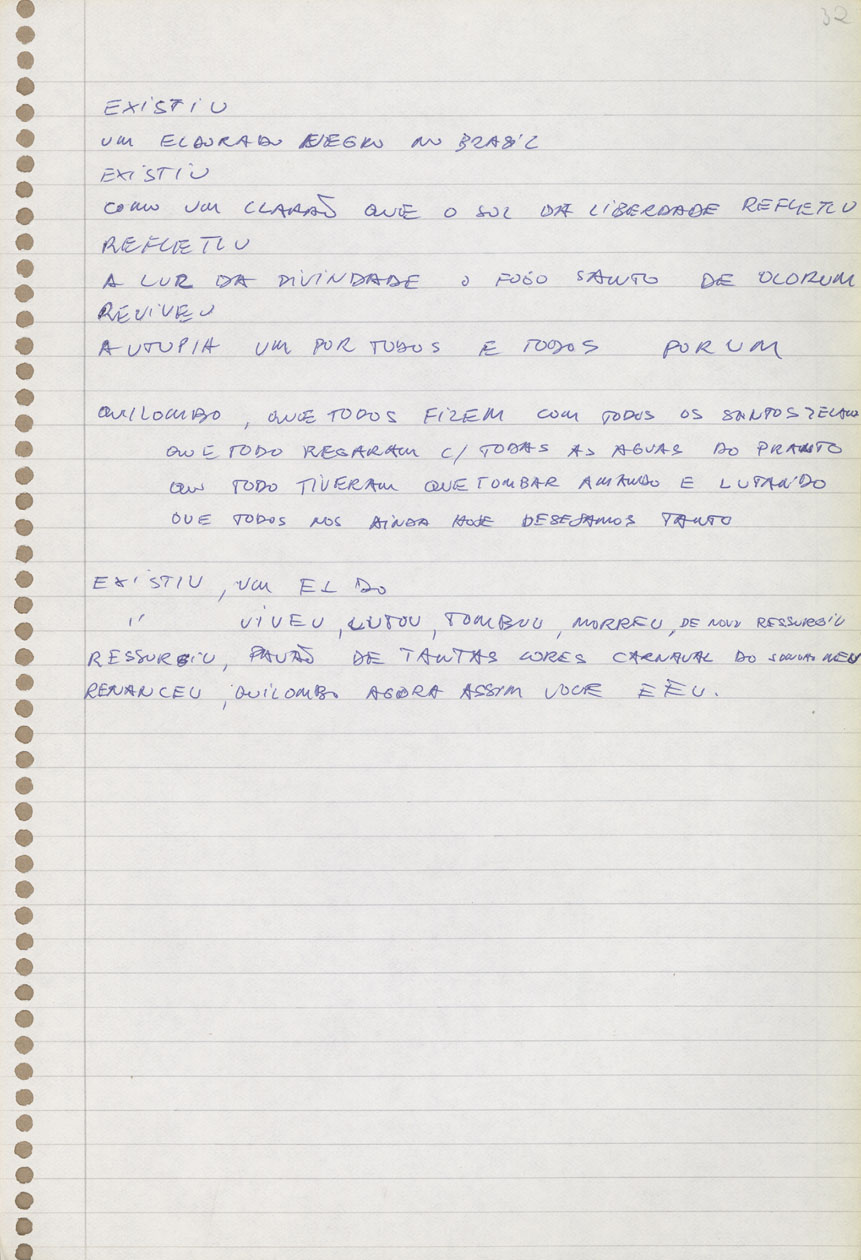 32
EXISTIU
UM ELDORADO NEGRO NO BRASIL
EXISTIU
COMO UM CLARÃO QUE O SOL DA LIBERDADE REFLETIU
REFLETIU
A LUR DA DIVINDADE O FOGO SANTO DE OLORUM
REVIVEU
A UTUPIA UM POR TODOS E TODOS POR UM
QUILOMBO, QUE TODOS FIZEM COM TODOS OS SANTOS ZELANDO
QUE TODO REGARAM C/ TODAS AS AGUAS DO PRANTO
QUE TODO TIVERAM QUE TOMBAR AMANDO E LUTANDO
QUE TODOS NOS AINDA HOJE DESEJAMOS TANTO
EXISTIU, UM EL DO
" VIVEU, LUTOU, TOMBOU, MORREU, DE NOVO RESSURGIU
RESSURGIU, PAVÃO DE TANTAS CORES CARNAVAL DO SONHO MEU
RENANCEU, QUILOMBO AGORA ASSIM VOCE E EU.